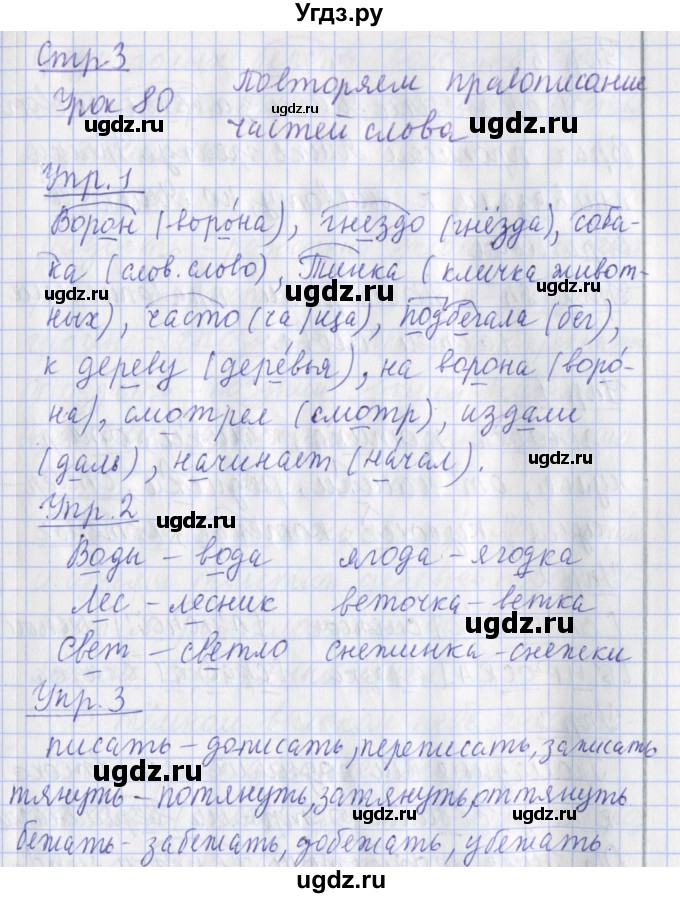 Угдз.ру
Стр.3
Урок 80 Повторяем правописание
частей слова
Упр.1
Ворон (воро́на), гнездо (гнёзда), соба-
ка (слов. слово), Тинка (кличка живот-
ных), часто (ча/ща), подбегала (бег),
к дереву (дере́вья), на ворона (воро́-
на), смотрел (смотр), издали
(даль), начинает (на́чал).
Упр.2
Воды – вода ягода – ягодка
Лес – лесник веточка – ветка
Свет – светло снежинка – снежки
Упр.3
писать – дописать, переписать, записать
тянуть – потянуть, затянуть, оттянуть
бежать – забежать, добежать, убежать.
ugdz.ru
ugdz.ru
ugdz.ru
ugdz.ru
ugdz.ru
ugdz.ru
ugdz.ru
ugdz.ru
ugdz.ru
ugdz.ru
ugdz.ru
ugdz.ru
ugdz.ru
ugdz.ru